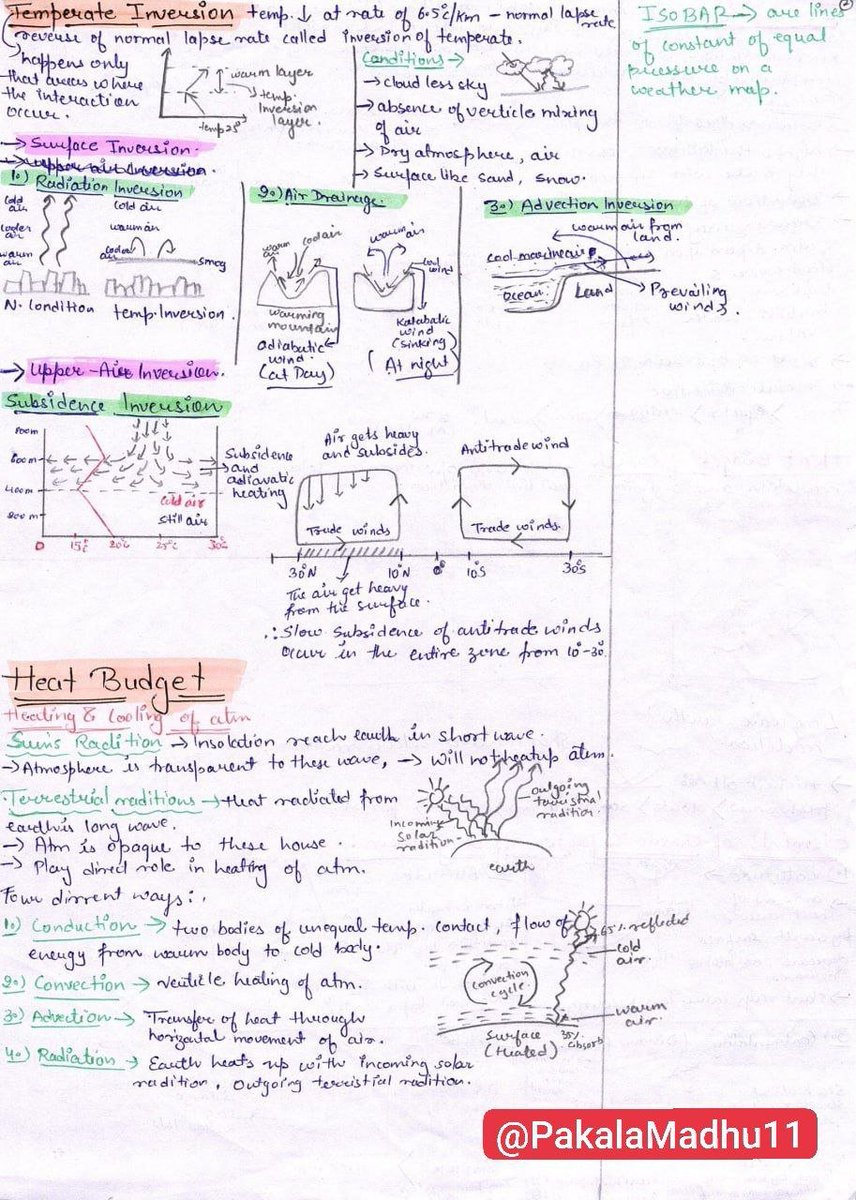 Temperate Inversion temp. ↓ at rate of 6.5°c/km - normal lapse rate
reverse of normal lapse rate called inversion of temperate.
happens only
that areas where
the interaction
occur.
warm layer
temp.
Inversion
layer.
temp 25°
Conditions →
→ cloud less sky
→ absence of verticle mixing
of air
→ Dry atmosphere, air
→ Surface like sand, snow.
ISOBAR → are lines
of constant of equal
pressure on a
weather map.
→ Surface Inversion.
→ Upper air Inversion.
1.) Radiation Inversion
cold air
cooler air
warm air
N. Condition
cold air
warm air
cooler air
smog
temp. Inversion.
2.) Air Drainage.
warm air
cool air
warming
mountain
adiabatic
wind
(at Day)
warm air
cool wind
Katabatic
wind
(sinking)
(At night)
3.) Advection Inversion
warm air from
land.
cool marine air
ocean
Land
Prevailing
winds.
→ Upper-Air Inversion.
Subsidence Inversion
800m
600m
400m
200m
0
15°c
20°c
25°c
30°c
cold air
still air
Subsidence
and
adiavatic
heating
Air gets heavy
and subsides.
Trade winds
Antitrade wind
Trade winds
30°N
10°N
0°
10°S
30°S
The air get heavy
from the surface.
∴ Slow subsidence of antitrade winds
occur in the entire zone from 10°-30°.
Heat Budget
Heating & Cooling of atm
Sun's Radition → Insolation reach earth in short wave.
→ Atmosphere is transparent to these wave, → will not heatup atem.
Terrestrial raditions → Heat radiated from
earth is long wave.
→ Atm is opaque to these house.
→ Play direct role in heating of atm.
Incoming
solar
radition
outgoing
terristrial
radition.
earth
Four dirrent ways:
1.) Conduction → two bodies of unequal temp. contact, flow of
energy from warm body to cold body.
2.) Convection → verticle heating of atm.
3.) Advection → Transfer of heat through
horizontal movement of air.
4.) Radiation → Earth heats up with incoming solar
radition, outgoing terristial radition.
65% reflected
cold
air.
convection
cycle.
warm
air.
Surface
(Heated)
35%
absorb
@PakalaMadhu11